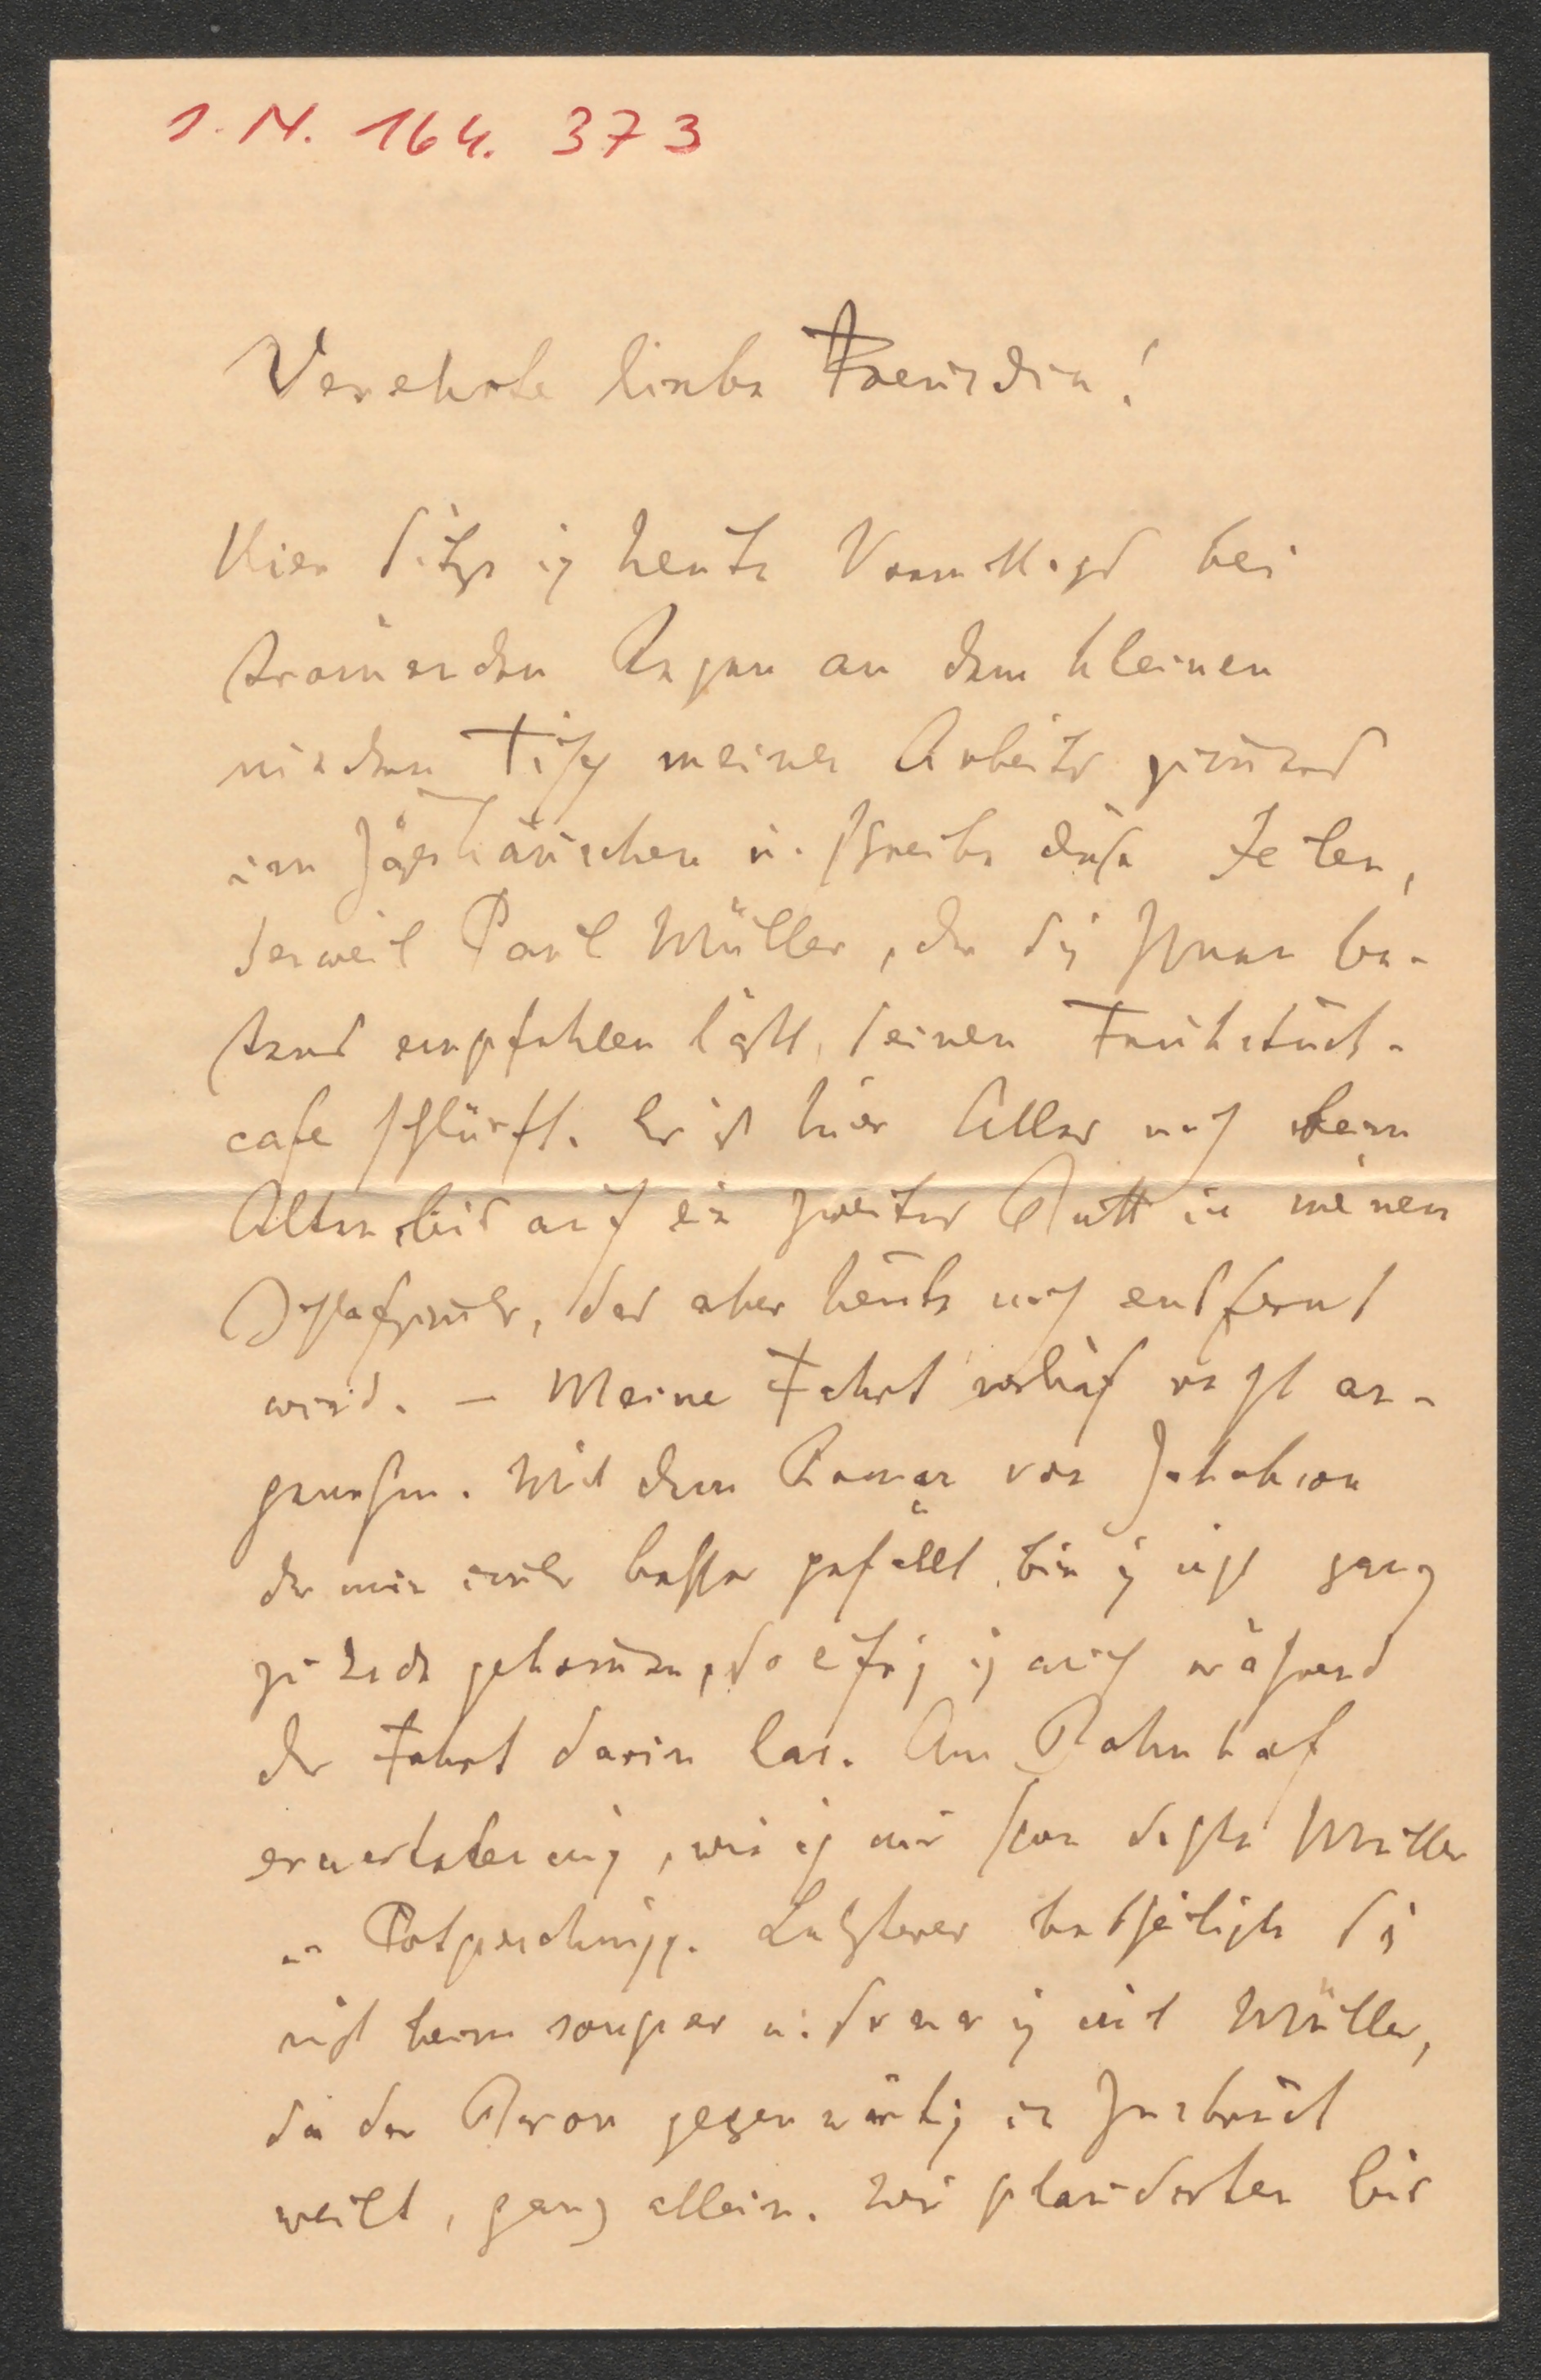 I. N. 164. 373
Verehrte liebe Freundin!
Hier sitze ich heute Vormittags bei
strömenden Regen an dem kleinen
runden Tisch meines Arbeitszimers
im Jägerhäuschen u. schreibe diese Zeilen,
derweil Paul Müller, der sich Ihnen be-
stens empfehlen läßt, seinen Frühstück-
cafe schlürft. Er ist hier Alles noch beim
Alten, bis auf ein zweites Bett in meinem
Schlafzimer, das aber heute noch entfernt
wird. – Meine Fahrt verlief recht an-
genehm. Mit dem Roman von Jakobson
der mir imer besser gefällt, bin ich nicht ganz
zu Ende gekomen, so eifrig ich auch während
der Fahrt darin las. Am Bahnhof
erwarteten mich, wie ich mir schon dachte Müller
u. Potpeschnigg. Letzterer betheiligte sich
nicht beim souper u. so war ich mit Müller,
da der Baron gegenwärtig in Insbruck
weilt, ganz allein. Wir plauderten bis